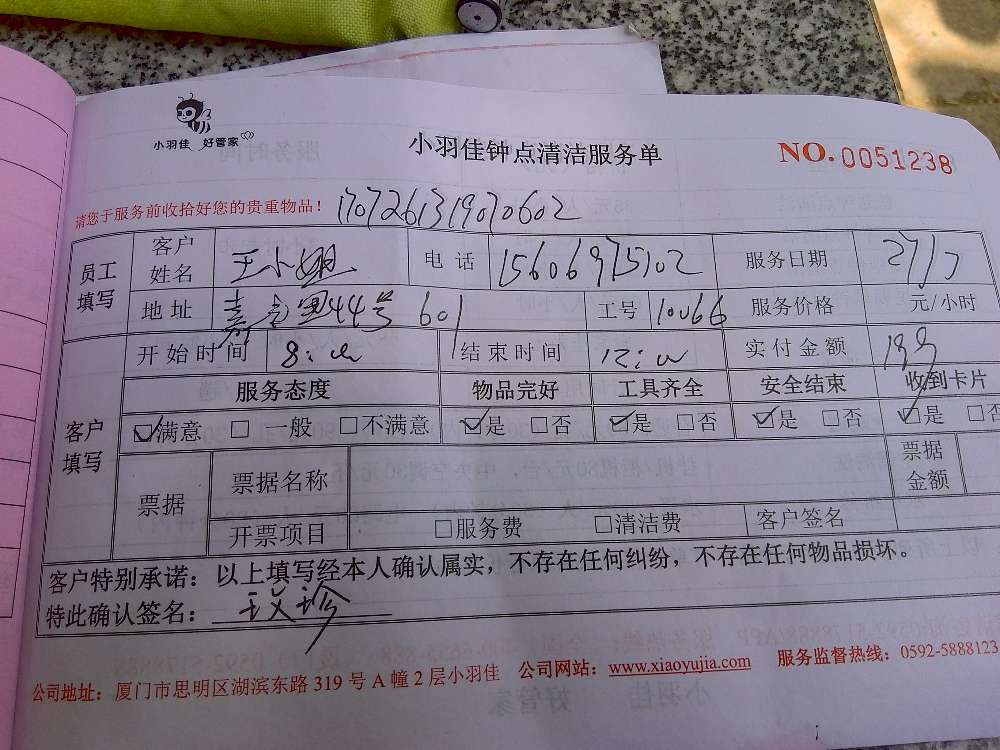 小羽佳 好管家
小羽佳钟点清洁服务单
NO.0051238
请您于服务前收拾好您的贵重物品！
1707261319070602
员工填写 客户姓名 王小姐 电话 15606975102 服务日期 27/7
地址 44号 601 工号 10066 服务价格 元/小时
客户填写 开始时间 8:00 结束时间 12:00 实付金额
服务态度 物品完好 工具齐全 安全结束 收到卡片
☑满意 □一般 □不满意 ☑是 □否 ☑是 □否 ☑是 □否 ☑是 □否
票据 票据名称 票据金额
开票项目 □服务费 □清洁费 客户签名
客户特别承诺：以上填写经本人确认属实，不存在任何纠纷，不存在任何物品损坏。
特此确认签名：
公司地址：厦门市思明区湖滨东路 319 号 A 幢 2 层小羽佳 公司网站：www.xiaoyujia.com 服务监督热线：0592-5888123